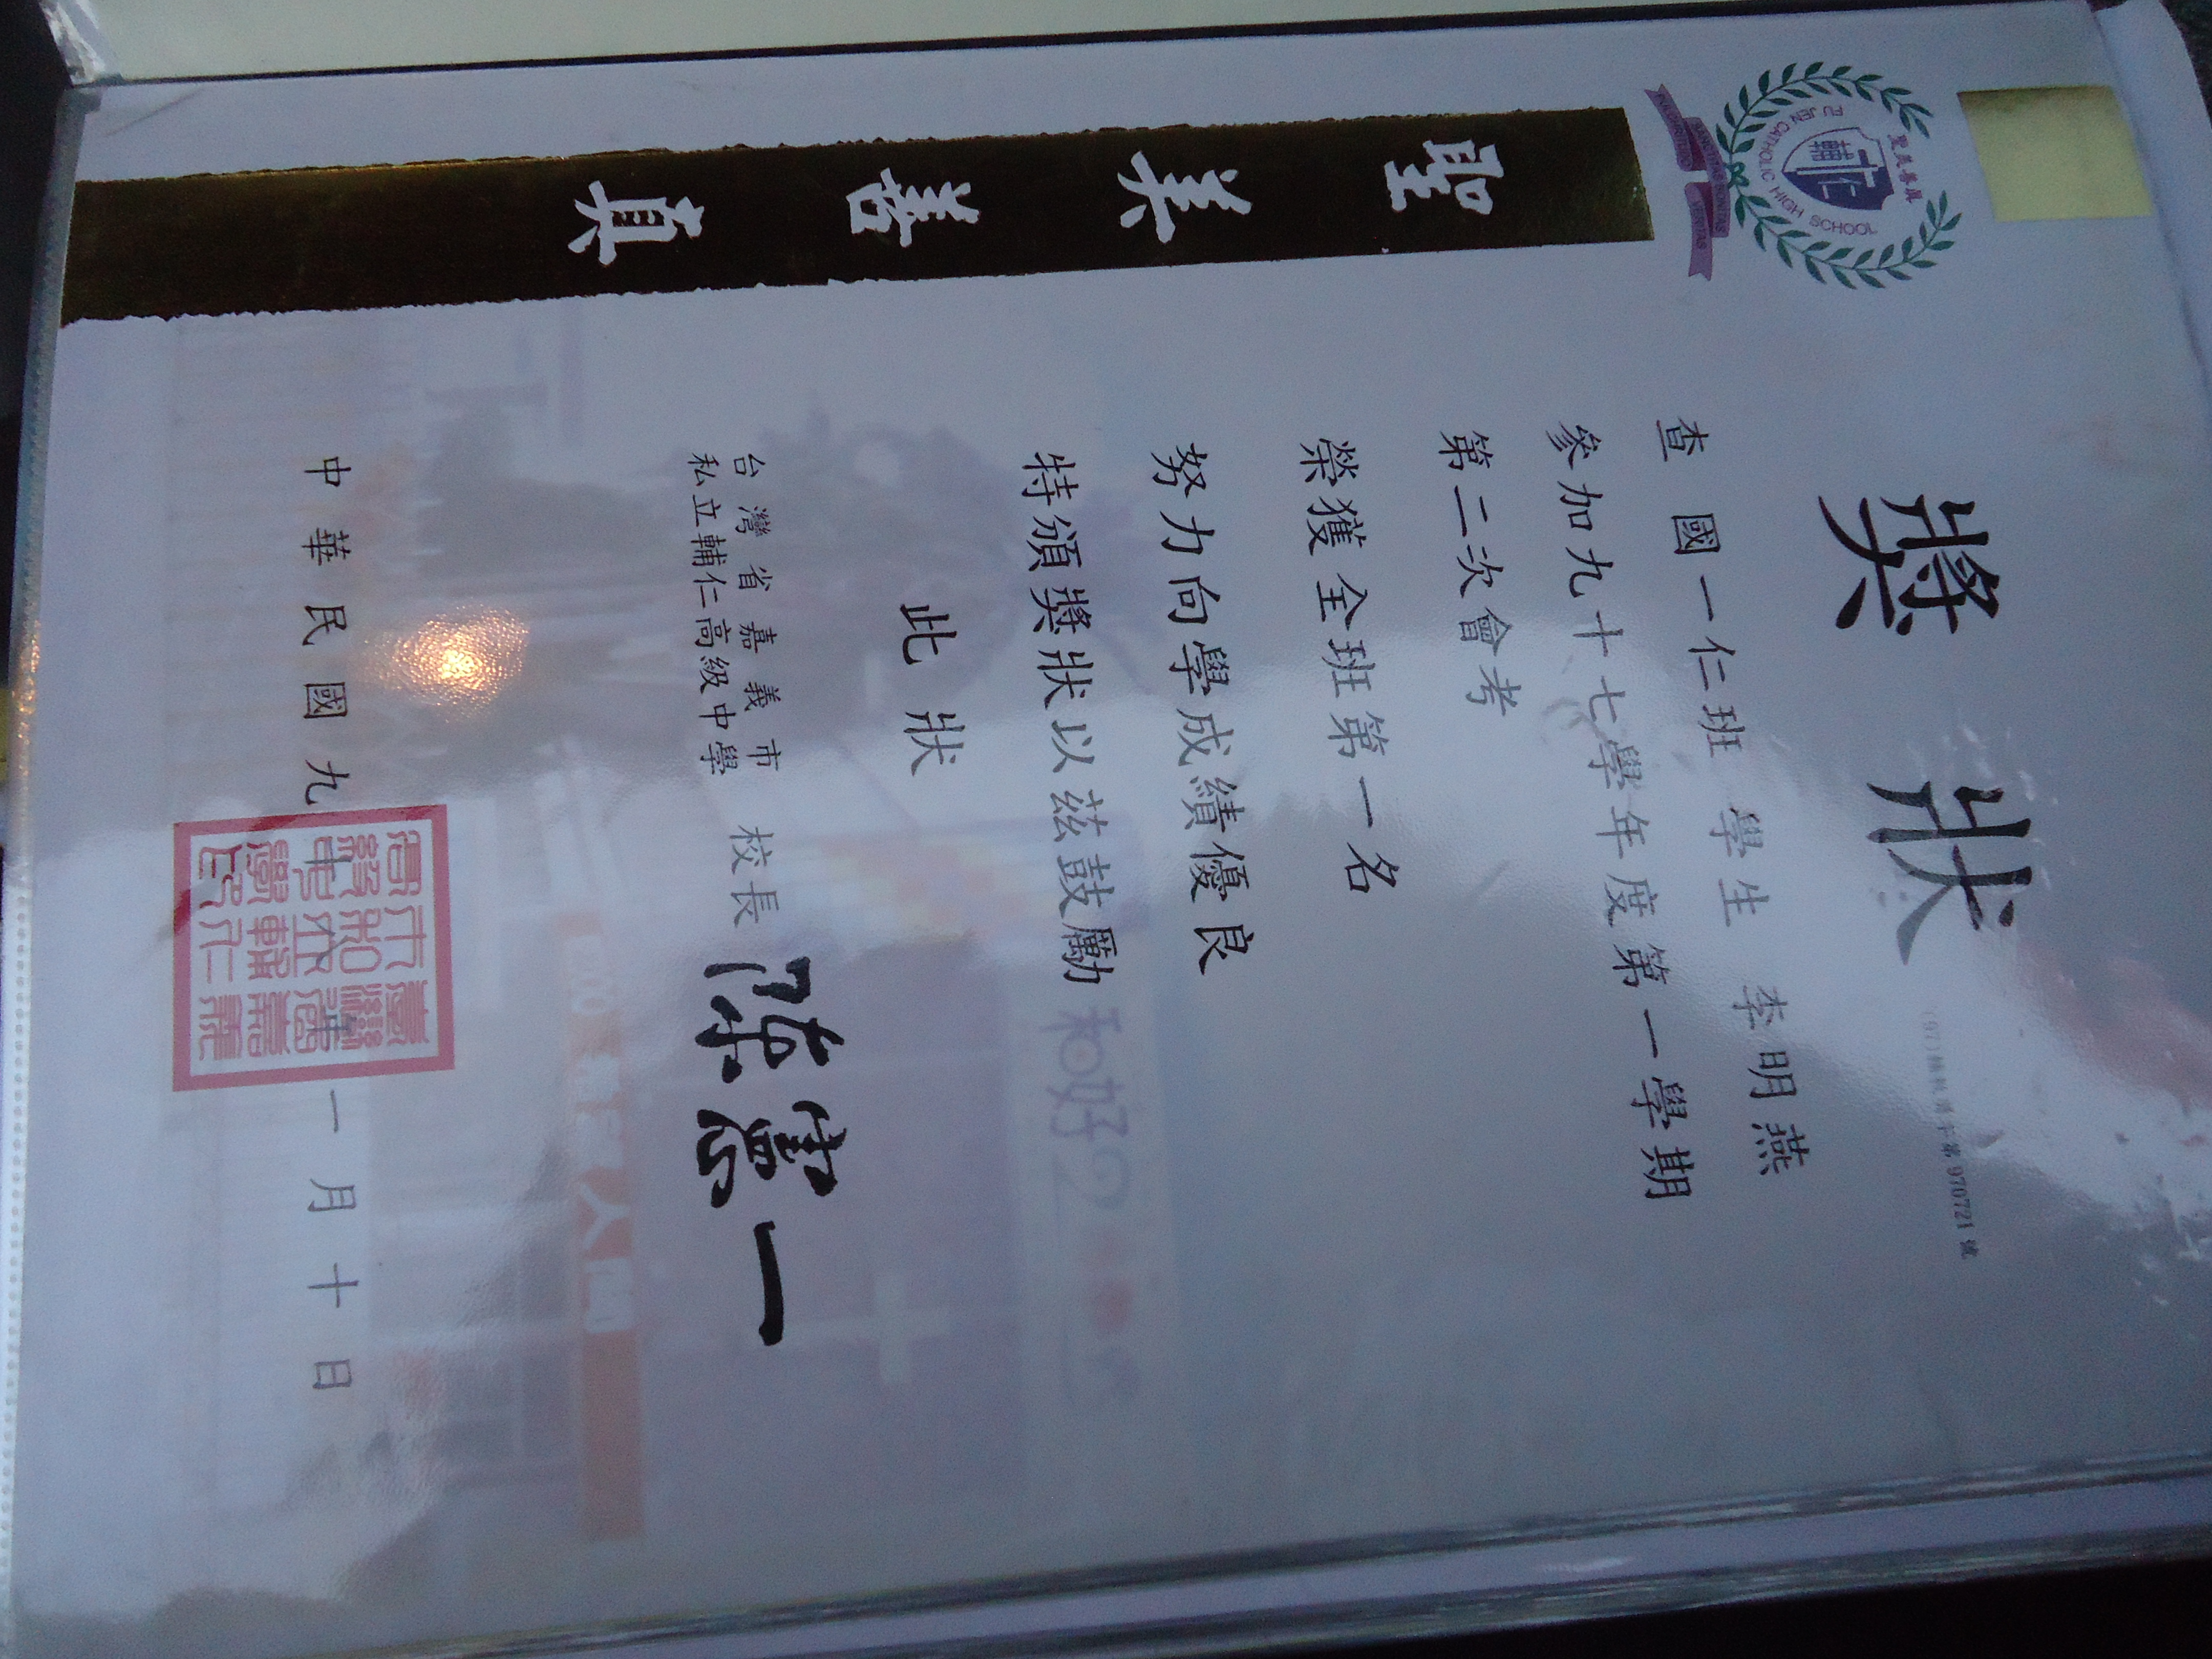 真善美聖
聖美善真
FU JEN CATHOLIC HIGH SCHOOL
輔仁
SANCTITAS BONITAS
PULCHRITUDO VERITAS
獎狀
查國一仁班 學生 李明燕
參加九十七學年度第一學期
第二次會考
榮獲全班第一名
努力向學成績優良
特頒獎狀以茲鼓勵
此狀
台灣省嘉義市
私立輔仁高級中學
校長 陳憲一
中華民國九十七年十一月十日